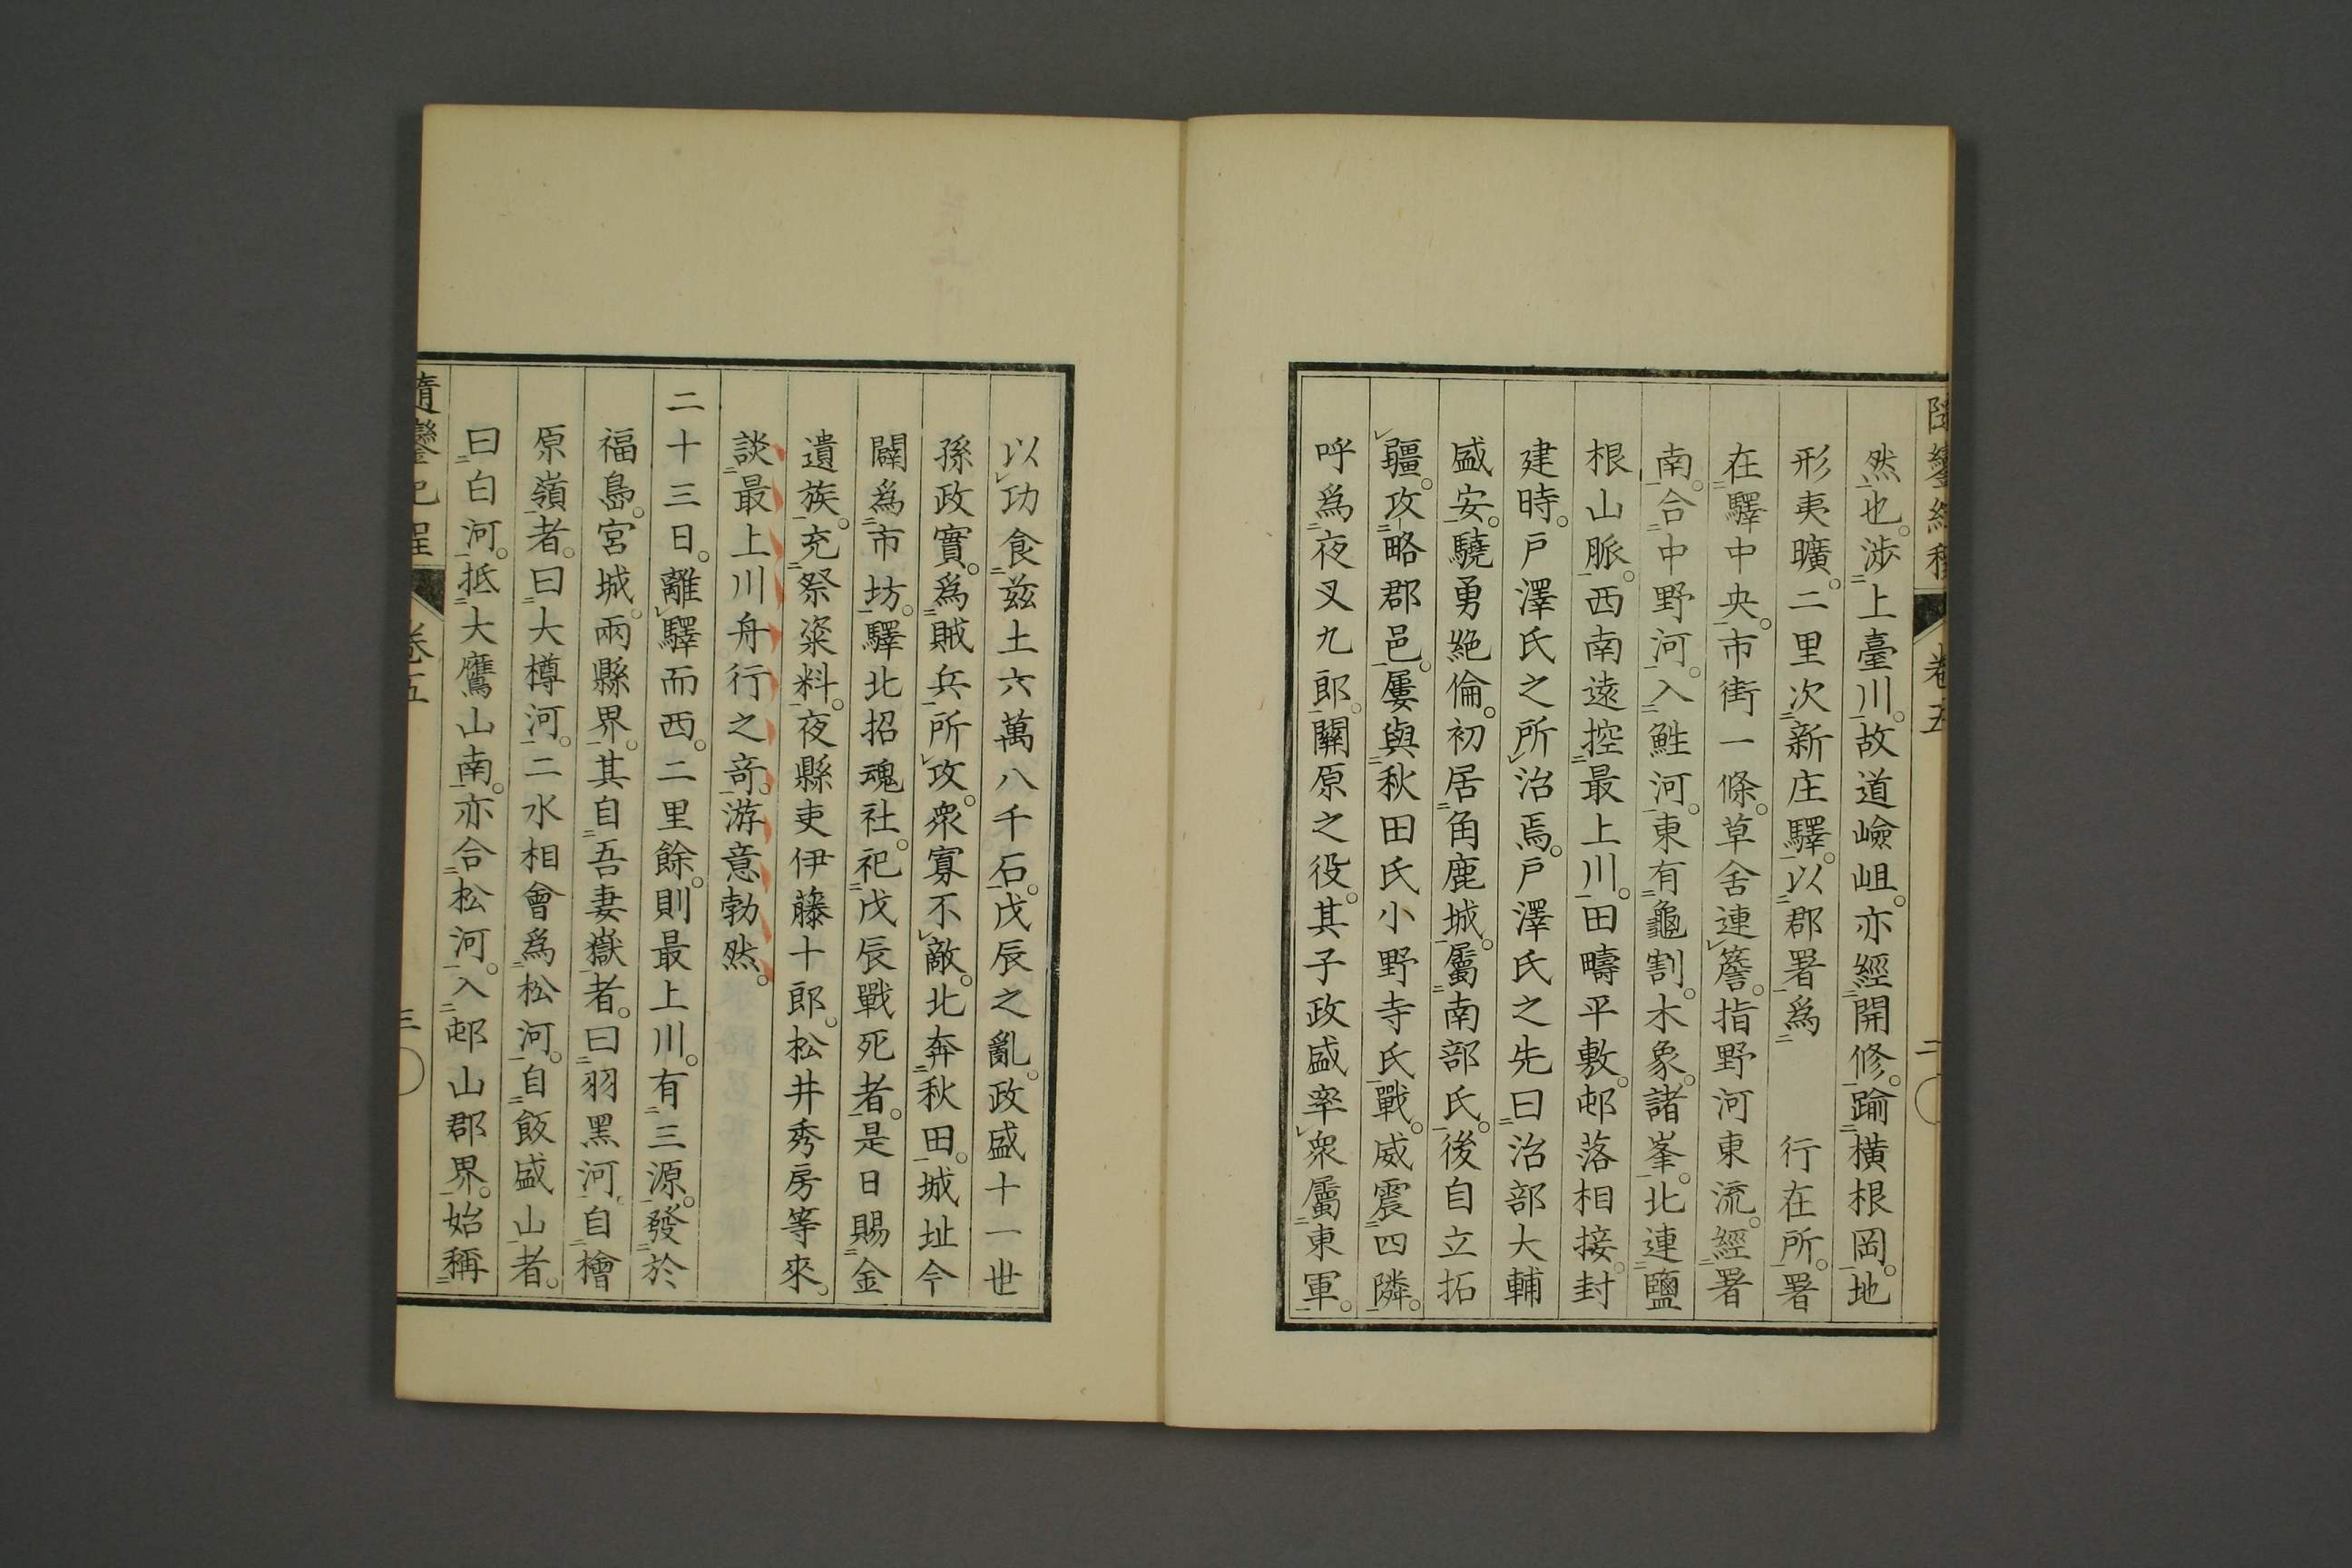 然也。涉上臺川。故道嶮岨。亦經開修。踰橫根岡。地
形夷曠。二里次新庄驛。以郡署爲　行在所。署
在驛中央。市街一條。草舍連簷。指野河東流。經署
南。合中野河。入鮏河。東有龜割。木象。諸峯。北連鹽
根山脈。西南遠控最上川。田疇平敷。邨落相接。封
建時。戶澤氏之所治焉。戶澤氏之先曰治部大輔
盛安。驍勇絕倫。初居角鹿城。屬南部氏。後自立拓
疆。攻略郡邑。屢與秋田氏小野寺氏戰。威震四隣。
呼爲夜叉九郎。關原之役。其子政盛率衆屬東軍。
隨鑾紀程　卷五　二
以功食茲土六萬八千石。戊辰之亂。政盛十一世
孫政實。爲賊兵所攻。衆寡不敵。北奔秋田。城址今
闢爲市坊。驛北招魂社。祀戊辰戰死者。是日賜金
遺族。充祭粢料。夜縣吏伊藤十郎。松井秀房等來。
談最上川舟行之奇。游意勃然。
二十三日。離驛而西。二里餘。則最上川。有三源。發於
福島。宮城。兩縣界。其自吾妻嶽者。曰羽黑河。自檜
原嶺者。曰大樽河。二水相會爲松河。自飯盛山者。
曰白河。抵大鷹山南。亦合松河。入邨山郡界。始稱
隨鑾紀程　卷五　三